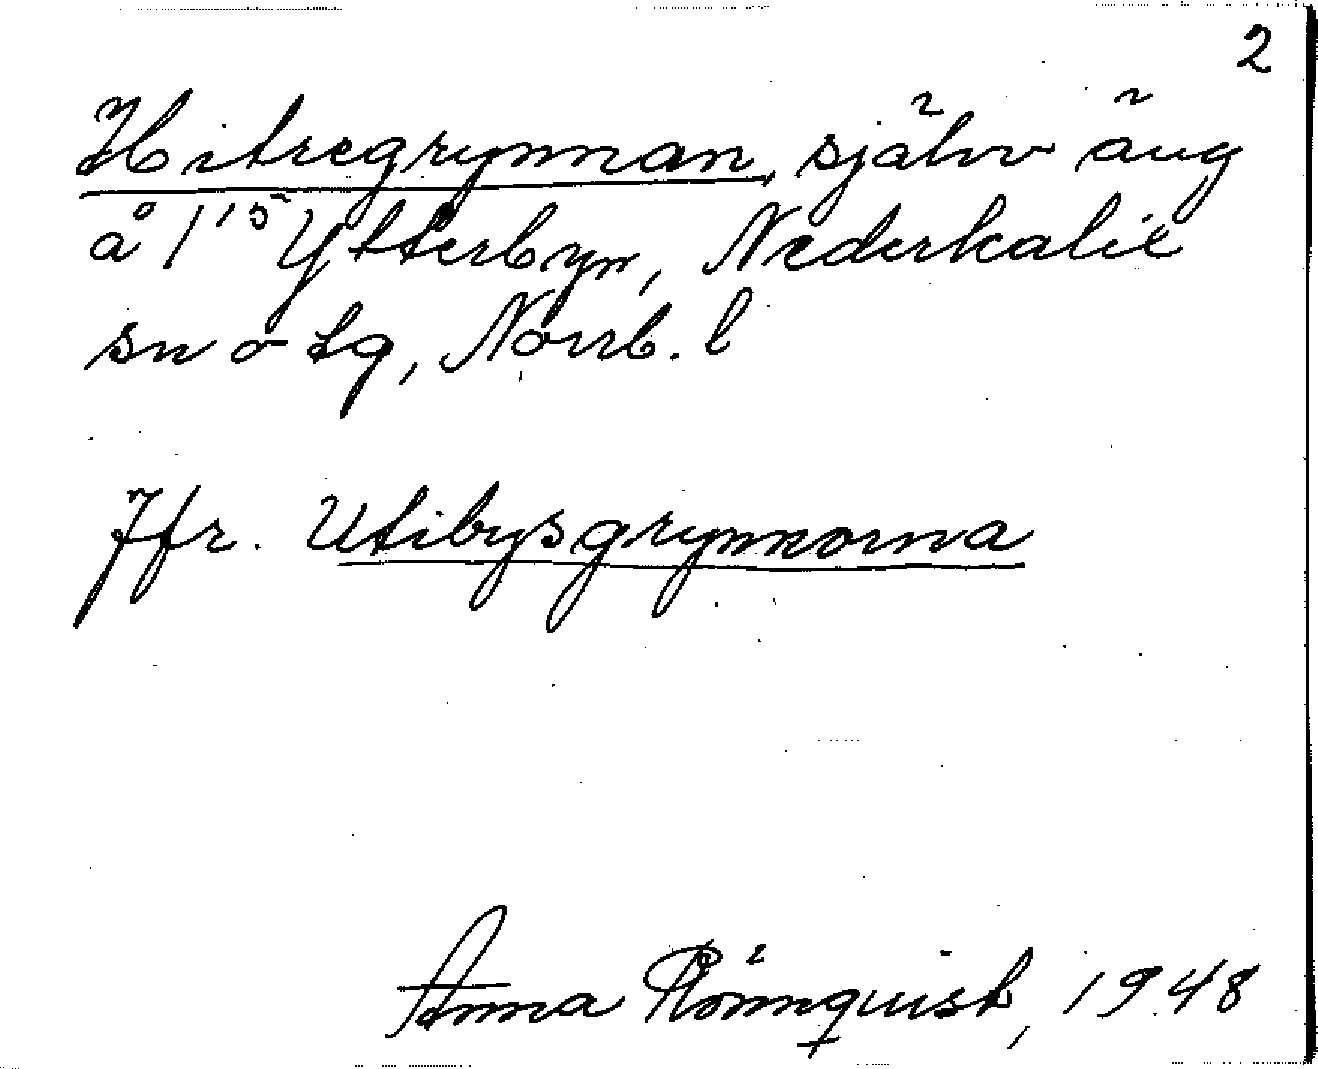 2
Hitregrynnan, själv äng
å 1¹⁵ Ytterbyn, Nederkalix
sn o tg, Norrb. l
Jfr. Utibysgrynnorna
Anna Rönnquist, 1948